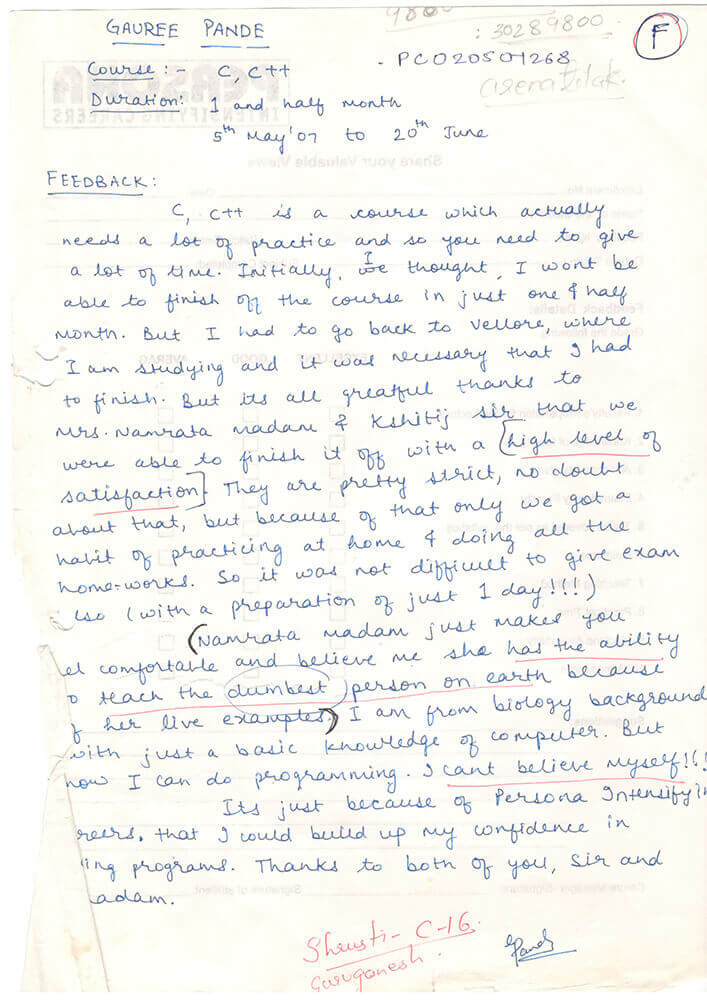 GAUREE PANDE
: 30289800
F
Course :- C, C++
. PC020501268
Duration: 1 and half month
5th May'07 to 20th June
FEEDBACK:
C, C++ is a course which actually
needs a lot of practice and so you need to give
a lot of time. Initially, I thought, I wont be
able to finish off the course in just one & half
month. But I had to go back to Vellore, where
I am studying and it was necessary that I had
to finish. But its all greatful thanks to
Mrs. Namrata madam & Kshitij sir that we
were able to finish it off with a (high level of
satisfaction]. They are pretty strict, no doubt
about that, but because of that only we got a
habit of practicing at home & doing all the
home-works. So it was not difficult to give exam
lso (with a preparation of just 1 day!!!)
(Namrata madam just makes you
el comfortable and believe me she has the ability
o teach the dumbest) person on earth because
f her live examples.) I am from biology background
with just a basic knowledge of computer. But
now I can do programming. I cant believe myself!!!
Its just because of Persona Intensifyin
reers, that I could build up my confidence in
ing programs. Thanks to both of you, Sir and
adam.
Shrusti - C-16.
Guruganesh.
GPande